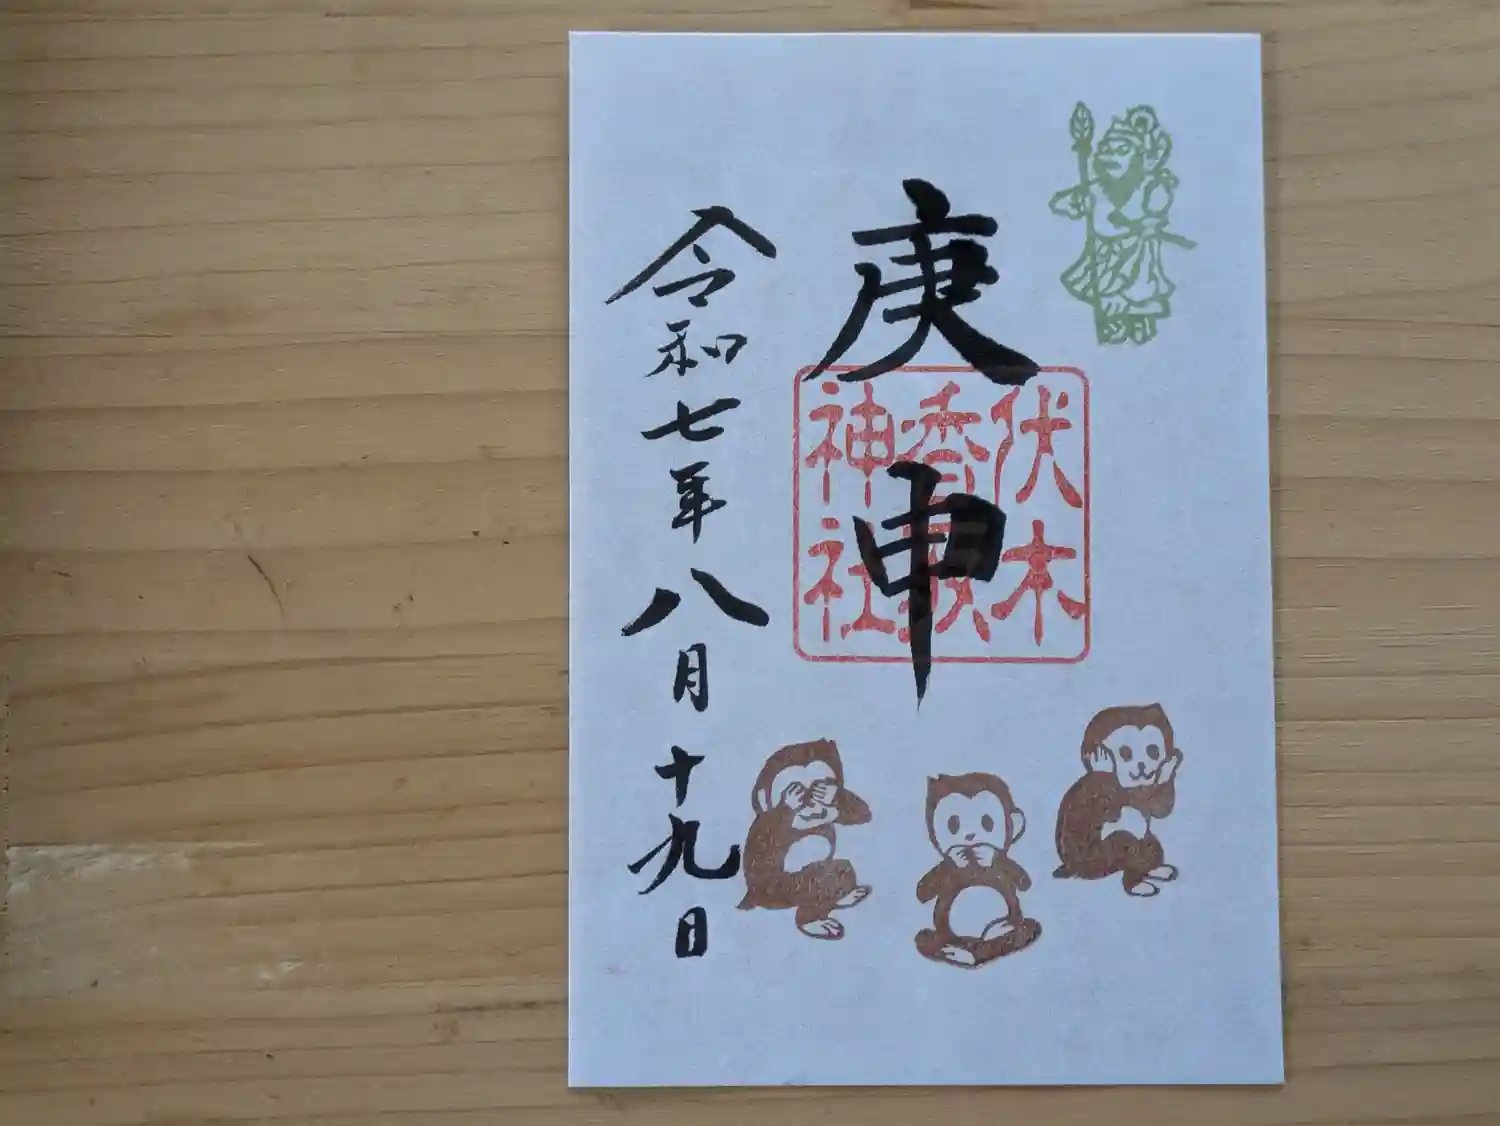 庚申
伏木
香取
神社
令和七年八月十九日